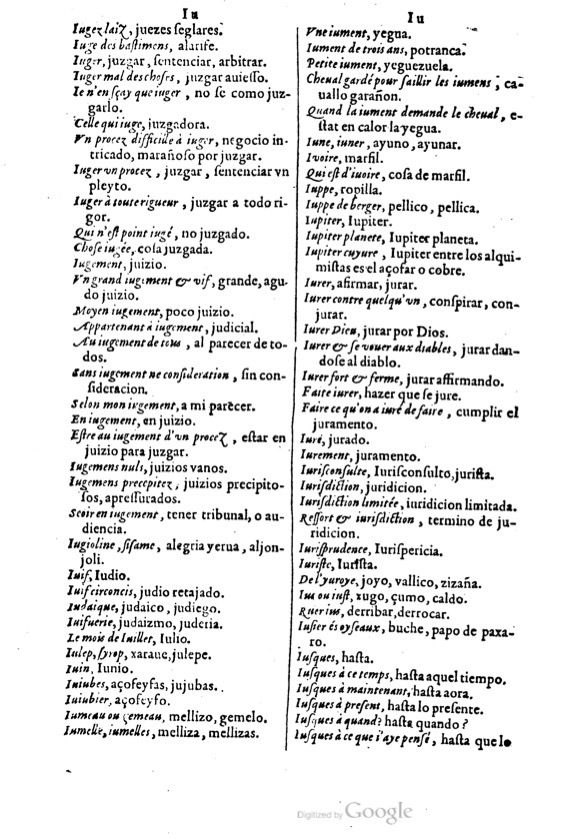 Iu
Iugez laiz, juezes seglares.
Iuge des bastimens, alarife.
Iuger, juzgar, sentenciar, arbitrar.
Iuger mal des choses, juzgar auiesso.
Ie n'en sçay que iuger, no se como juz-
garlo.
Celle qui iuge, juzgadora.
Vn procez difficile à iuger, negocio in-
tricado, marañoso por juzgar.
Iuger vn procez, juzgar, sentenciar vn
pleyto.
Iuger à toute rigueur, juzgar a todo ri-
gor.
Qui n'est point iugé, no juzgado.
Chose iugée, cosa juzgada.
Iugement, juizio.
Vn grand iugement & vif, grande, agu-
do juizio.
Moyen iugement, poco juizio.
Appartenant à iugement, judicial.
Au iugement de tous, al parecer de to-
dos.
Sans iugement ne consideration, sin con-
sideracion.
Selon mon iugement, a mi parecer.
En iugement, en juizio.
Estre au iugement d'vn procez, estar en
juizio para juzgar.
Iugemens nuls, juizios vanos.
Iugemens precepitez, juizios precipito-
sos, apressurados.
Seoir en iugement, tener tribunal, o au-
diencia.
Iugioline, sisame, alegria yerua, aljon-
joli.
Iuif, Iudio.
Iuif circoncis, judio retajado.
Iudaique, judaico, judiego.
Iuifuerie, judaizmo, juderia.
Le mois de Iuillet, Iulio.
Iulep, syrop, xaraue, julepe.
Iuin, Iunio.
Iuiubes, açofeyfas, jujubas.
Iuiubier, açofeyfo.
Iumeau ou gemeau, mellizo, gemelo.
Iumelle, iumelles, melliza, mellizas.
Iu
Vne iument, yegua.
Iument de trois ans, potranca.
Petite iument, yeguezuela.
Cheual gardé pour saillir les iumens, ca-
uallo garañon.
Quand la iument demande le cheual, e-
stat en calor la yegua.
Iune, iuner, ayuno, ayunar.
Ivoire, marfil.
Qui est d'iuoire, cosa de marfil.
Iuppe, ropilla.
Iuppe de berger, pellico, pellica.
Iupiter, Iupiter.
Iupiter planete, Iupiter planeta.
Iupiter cuyure, Iupiter entre los alqui-
mistas es el açofar o cobre.
Iurer, afirmar, jurar.
Iurer contre quelqu'vn, conspirar, con-
jurar.
Iurer Dieu, jurar por Dios.
Iurer & se vouer aux diables, jurar dan-
dose al diablo.
Iurer fort & ferme, jurar affirmando.
Faite iurer, hazer que se jure.
Faire ce qu'on a iuré de faire, cumplir el
juramento.
Iuré, jurado.
Iurement, juramento.
Iurisconsulte, Iurisconsulto, jurista.
Iurisdiction, juridicion.
Iurisdiction limitée, iuridicion limitada.
Ressort & iurisdiction, termino de ju-
ridicion.
Iurisprudence, Iurispericia.
Iuriste, Iurista.
De l'yuroye, joyo, vallico, zizaña.
Ius ou iust, xugo, çumo, caldo.
Ruer ius, derribar, derrocar.
Iusier és oyseaux, buche, papo de paxa-
ro.
Iusques, hasta.
Iusques à ce temps, hasta aquel tiempo.
Iusques à maintenant, hasta aora.
Iusques à present, hasta lo presente.
Iusques à quand? hasta quando?
Iusques à ce que i'aye pensé, hasta que lo
Digitized by Google